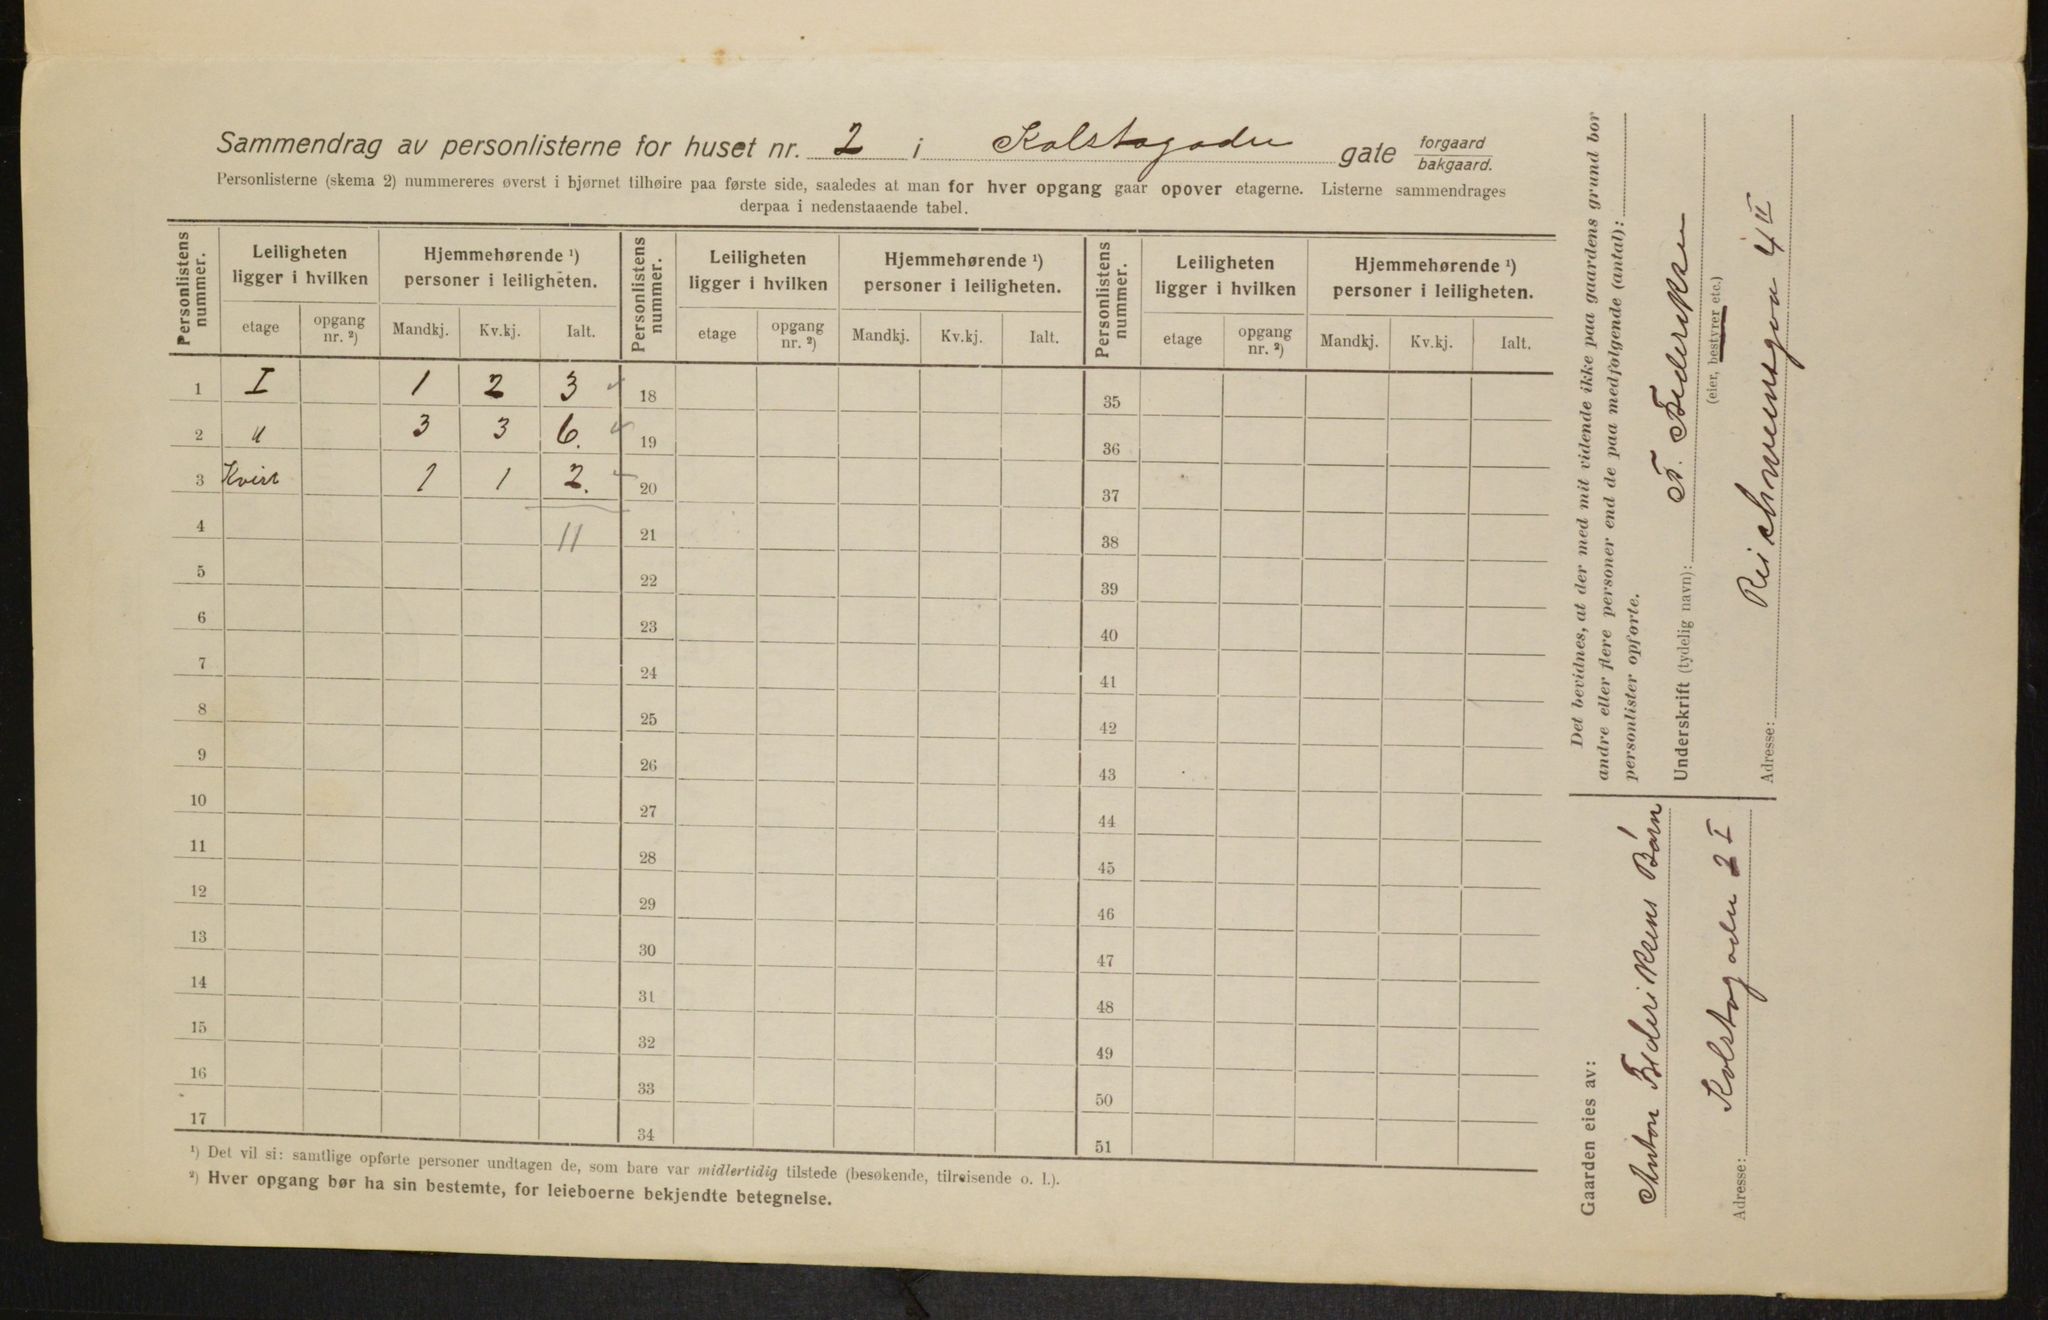 Sammendrag av personlisterne for huset nr. 2 i Kolstogaden gate forgaard bakgaard.
Personlisterne (skema 2) nummereres øverst i hjørnet tilhøire paa første side, saaledes at man for hver opgang gaar opover etagerne. Listerne sammendrages
derpaa i nedenstaaende tabel.
Personlistens nummer. Leiligheten ligger i hvilken Hjemmehørende ¹) personer i leiligheten. Personlistens nummer. Leiligheten ligger i hvilken Hjemmehørende ¹) personer i leiligheten. Personlistens nummer. Leiligheten ligger i hvilken Hjemmehørende ¹) personer i leiligheten.
etage opgang nr. ²) Mandkj. Kv.kj. Ialt. etage opgang nr. ²) Mandkj. Kv.kj. Ialt. etage opgang nr. ²) Mandkj. Kv.kj. Ialt.
1 I 1 2 3 18 35
2 II 3 3 6. 19 36
3 Kvist 1 1 2. 20 37
4 11 21 38
5 22 39
6 23 40
7 24 41
8 25 42
9 26 43
10 27 44
11 28 45
12 29 46
13 30 47
14 31 48
15 32 49
16 33 50
17 34 51
¹) Det vil si: samtlige opførte personer undtagen de, som bare var midlertidig tilstede (besøkende, tilreisende o. l.).
²) Hver opgang bør ha sin bestemte, for leieboerne bekjendte betegnelse.
Det bevidnes, at der med mit vidende ikke paa gaardens grund bor
andre eller flere personer end de paa medfølgende (antal):
personlister opførte.
Underskrift (tydelig navn): F. Frederiksen
(eier, bestyrer etc.)
Adresse: 4 II
Gaarden eies av:
Anton Frederiksens Børn
Adresse: Kolstogaden 2 I